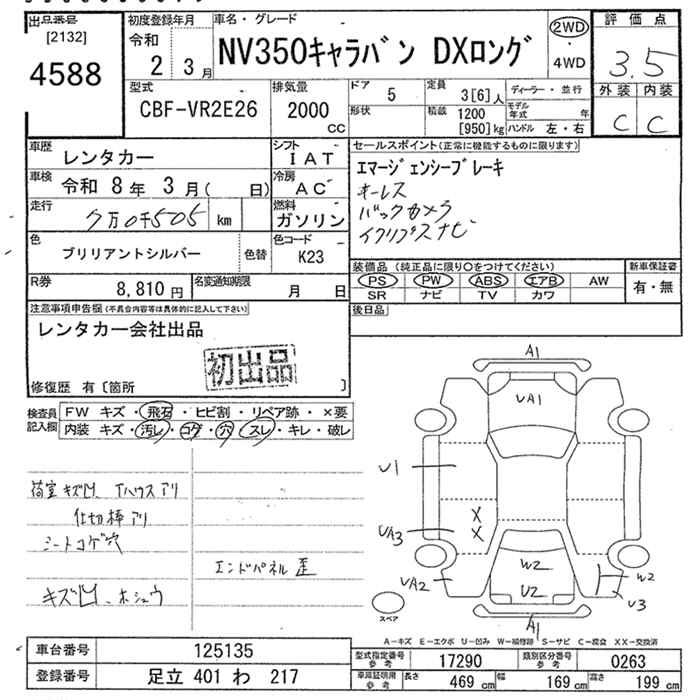 出品番号
[2132]
4588
初度登録年月
令和
2 3月
車名・グレード
NV350キャラバン DXロング
2WD
・
4WD
評価点
3.5
外装 内装
C C
型式
CBF-VR2E26
排気量
2000
CC
ドア
5
定員
3[6]人
ディーラー・並行
形状
積載
1200
[950]kg
モデル
年式 年
ハンドル 左・右
車歴
レンタカー
シフト
IAT
車検
令和 8年 3月( 日)
冷房
AC
走行
7万0千505 km
燃料
ガソリン
色
ブリリアントシルバー
色替
色コード
K23
R券
8,810円
名変通知期限
月 日
セールスポイント(正常に機能するものに限ります)
エマージェンシーブレーキ
キーレス
バックカメラ
イクリプスナビ
装備品(純正品に限り○をつけてください)
PS PW ABS エアB AW
SR ナビ TV カワ
新車保証書
有・無
後日品
注意事項申告欄(不具合内容等は具体的に記入して下さい)
レンタカー会社出品
初出品
修復歴 有〔箇所 〕
検査員
記入欄
FW キズ・飛石・ヒビ割・リペア跡・×要
内装 キズ・汚レ・コゲ・穴・スレ・キレ・破レ
荷室キズ凹 Tハウスアリ
仕切棒アリ
シートコゲ穴
エンドパネル歪
キズ凹、ホシュウ
A1
UA1
U1
X
X
UA3
UA2
W2
U2
W2
U3
A1
スペア
A-キズ E-エクボ U-凹み W-補修跡 S-サビ C-腐食 XX-交換済
車台番号
125135
登録番号
足立 401 わ 217
型式指定番号
参考
17290
類別区分番号
参考
0263
車庫証明用
参考
長さ
469cm
幅
169cm
高さ
199cm